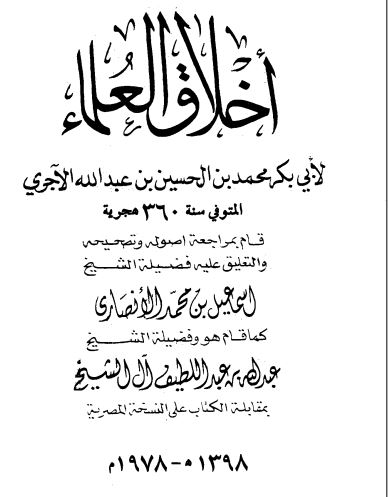 أخلاق العلماء
لأبي بكر محمد بن الحسين بن عبد الله الآجري
المتوفي سنة ٣٦٠ هجرية
قام بمراجعة اصوله وتصحيحه
والتعليق عليه فضيلة الشيخ
اسماعيل بن محمد الأنصاري
كما قام هو وفضيلة الشيخ
عبد الله بن عبد اللطيف آل الشيخ
بمقابلة الكتاب على النسخة المصرية
١٣٩٨ه - ١٩٧٨م